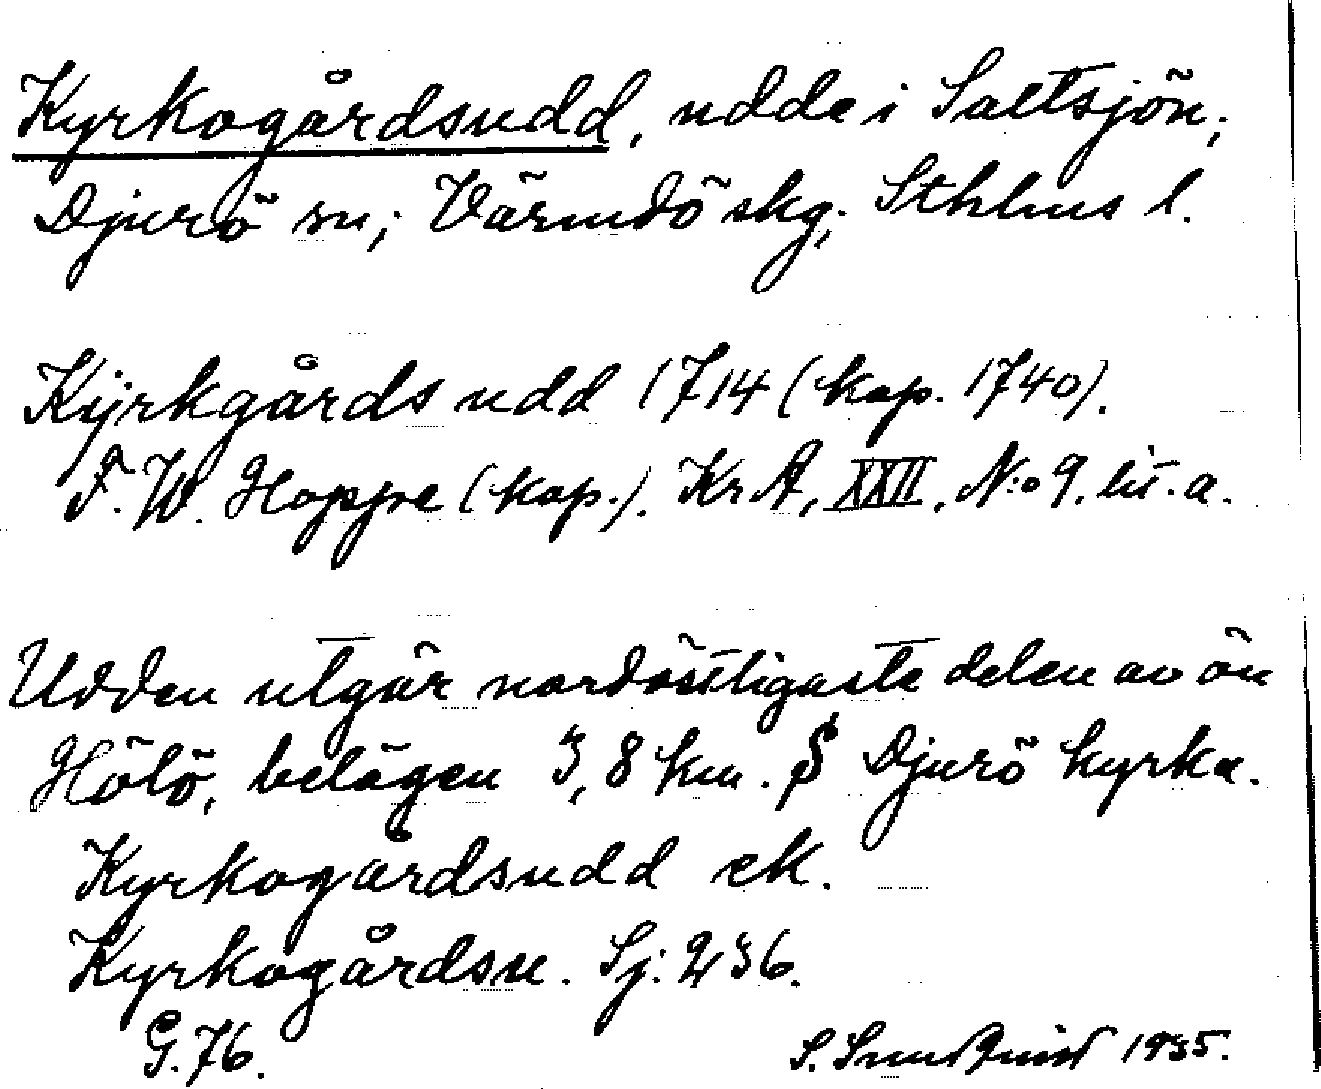 Kyrkogårdsudd, udde i Saltsjön;
Djurö sn; Värmdö skg; Sthlms l.
Kÿrkgårds udd 1714 (kop. 1740).
F. W. Hoppe (kop.). Kr A, XXII, N:o 9. lit. a.
Udden utgör nordöstligaste delen av ön
Hölö, belägen 3,8 km. S Djurö kyrka.
Kyrkogårdsudd ek.
Kyrkogårdsu. Sj: 236.
G. 76.
S. 1935.